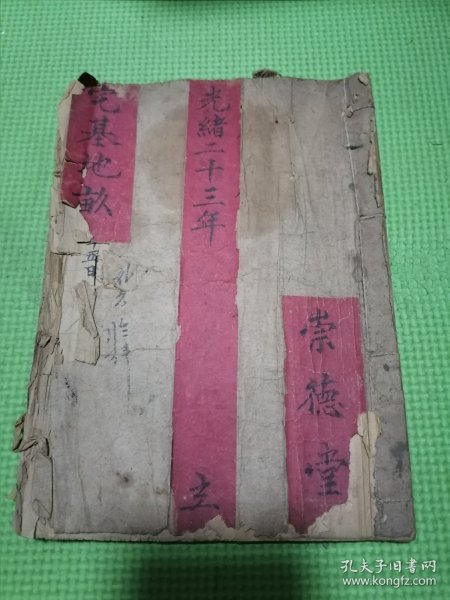 崇德堂
光緒二十三年 立
宅基地畝
孔夫子旧书网
www.kongfz.com